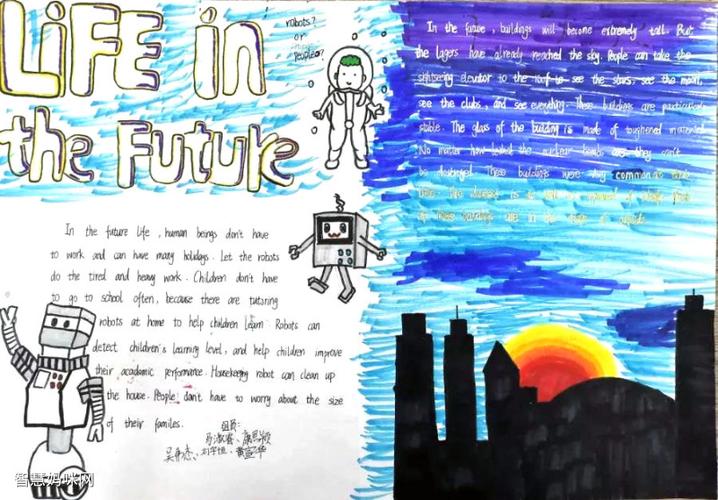 LiFE in
the FutuRe
robots?
or
people?
In the future, buildings will become extremely tall. But
the layers have already reached the sky. People can take the
sightseeing elevator to the roof to see the stars, see the moon,
see the clubs, and see everything. These buildings are particularly
stable. The glass of the building is made of toughened material.
No matter how the nuclear bombs are they can't
be destroyed. These buildings were very common at that
time. The
these buildings are in the
In the future life, human beings don't have
to work and can have many holidays. Let the robots
do the tired and heavy work. Children don't have
to go to school often, because there are tutoring
robots at home to help children learn. Robots can
detect children's learning level, and help children improve
their academic performance. Housekeeping robot can clean up
the house. People don't have to worry about the size
of their families.
组员:
智慧妈咪网